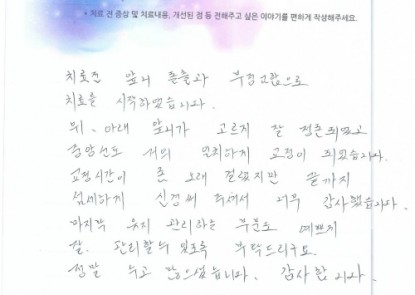 * 치료 전 증상 및 치료내용, 개선된 점 등 전해주고 싶은 이야기를 편하게 작성해주세요.
치료전 앞니 돌출과 부정교합으로
치료를 시작하였습니다.
위, 아래 앞니가 고르게 잘 정돈되었고
중앙선도 거의 일치하게 교정이 되었습니다.
교정시간이 좀 오래 걸렸지만 끝까지
섬세하게 신경써 주셔서 너무 감사했습니다.
마지막 유지 관리하는 부분도 예쁘게
잘 관리할수 있도록 부탁드리구요.
정말 수고 많으셨습니다. 감사합니다.